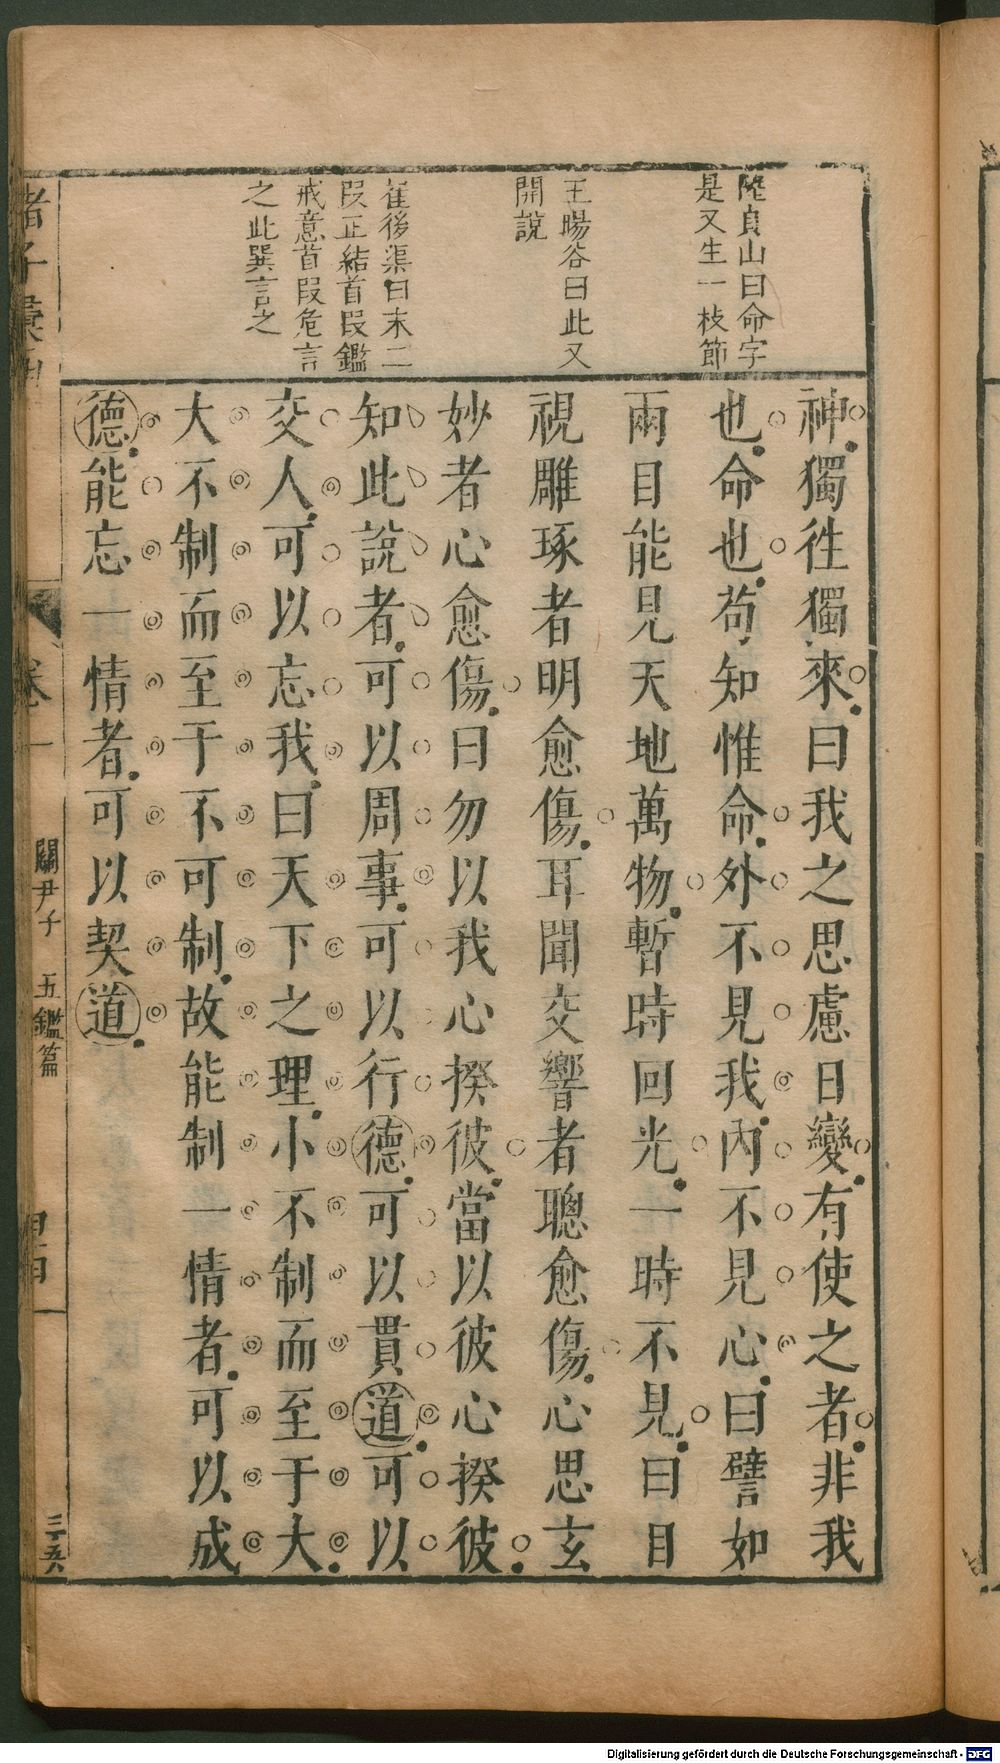 陸貞山曰命字
是又生一枝節
王暘谷曰此又
開說
崔後渠曰末二
段正結首段鑑
戒意首段危言
之此巽言之
神獨徃獨來曰我之思慮日變有使之者非我
也命也苟知惟命外不見我內不見心曰譬如
兩目能見天地萬物暫時回光一時不見曰目
視雕琢者明愈傷耳聞交響者聰愈傷心思玄
妙者心愈傷曰勿以我心揆彼當以彼心揆彼
知此說者可以周事可以行德可以貫道可以
交人可以忘我曰天下之理小不制而至于大
大不制而至于不可制故能制一情者可以成
德能忘一情者可以契道
諸子彙
卷一
關尹子 五鑑篇
三十五
Digitalisierung gefördert durch die Deutsche Forschungsgemeinschaft - DFG